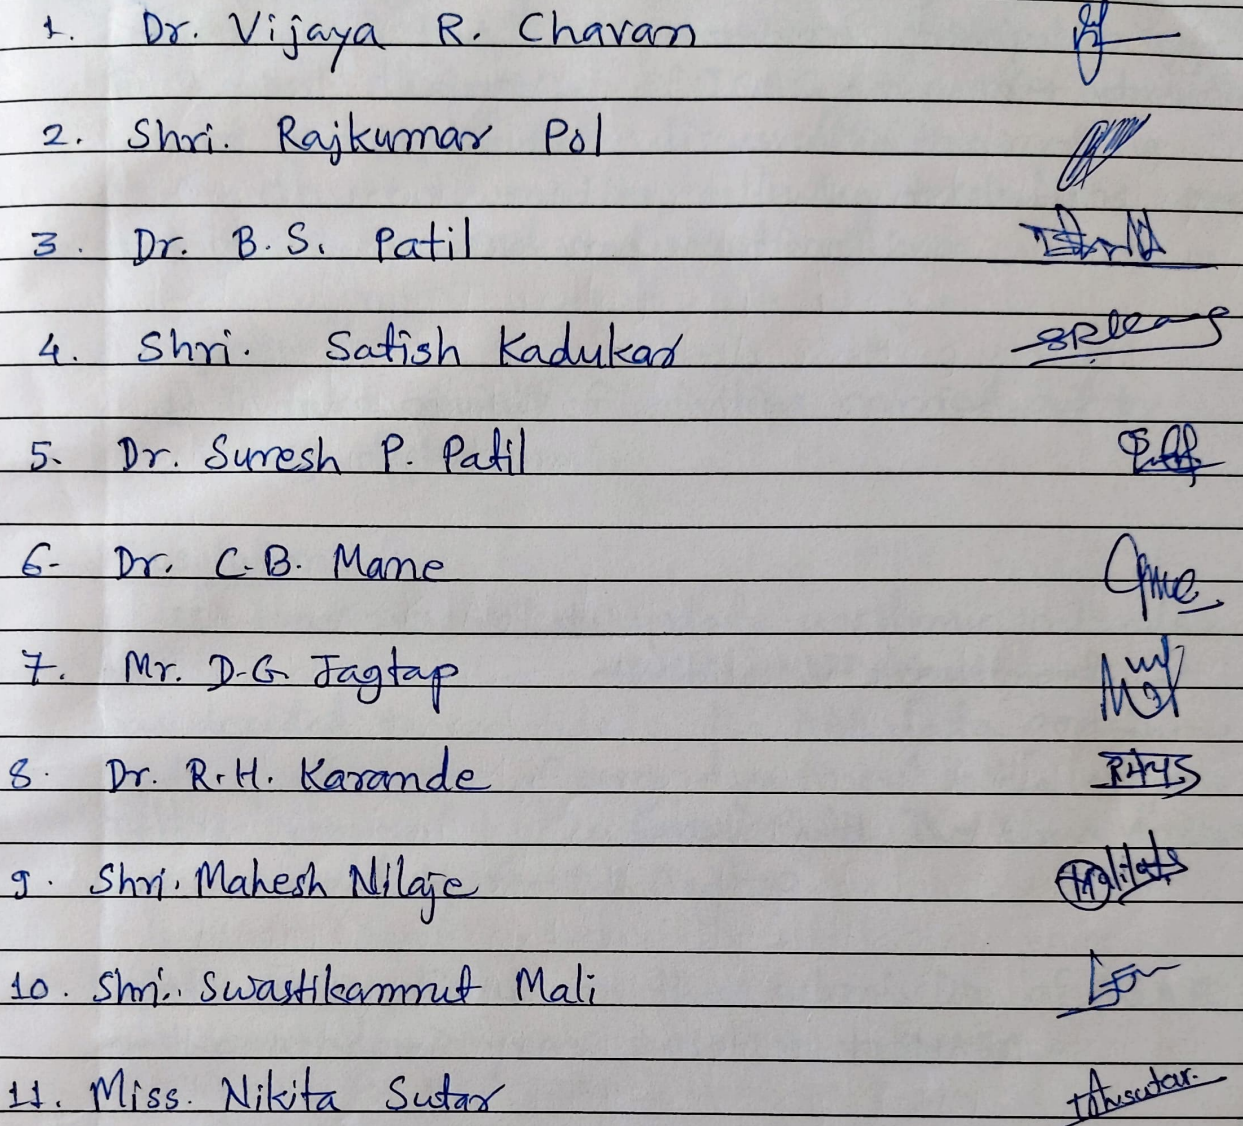 1. Dr. Vijaya R. Chavan
2. Shri. Rajkumar Pol
3. Dr. B.S. Patil
4. Shri. Satish Kadukar
5. Dr. Suresh P. Patil
6. Dr. C.B. Mane
7. Mr. D.G. Jagtap
8. Dr. R.H. Karande
9. Shri. Mahesh Nilaje
10. Shri. Swastikamrut Mali
11. Miss. Nikita Sutar